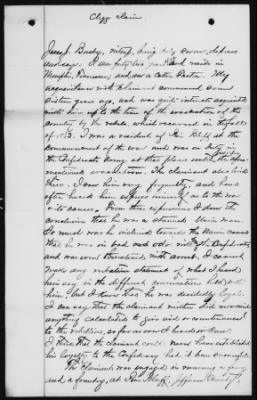 Clegg claim.
Jesse J. Busby, witness, being duly sworn, deposes
and says: I am fifty two years old and reside in
Memphis, Tennessee and am a Cotton Factor. My
acquaintance with claimant commenced some
sixteen years ago, and was quite intimate
with him up to the time of the evacuation of the
country by the rebels which occurred in the fall
of 1863. I was a resident of Pine Bluff at the
commencement of the war and was on duty in
the Confederate army at that place until the afore-
mentioned evacuation. The claimant also lived
there. I saw him very frequently, and have
often heard him express himself as to the war
its causes, &c. From those expressions I drew the
conclusion that he was a staunch Union man.
So much was he inclined towards the Union cause
that he was in bad odor with the Confederates
and was even threatened with arrest. I cannot
make any verbatim statement of what I heard
him say in the different conversations held with
him, but I know that he was decidedly loyal.
I can say that the claimant neither did nor said
anything calculated to give aid or countenance
to the rebellion, so far as ever I heard or knew.
I think that the claimant could never have established
his loyalty to the Confederacy had it been
The claimant was engaged in running a
and a foundry, at Pine Bluff, Jefferson County,